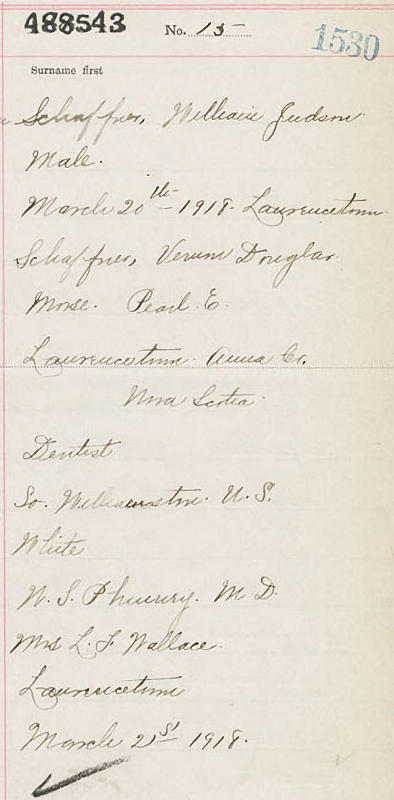 488543 No. 15 1530
Surname first
Schaffner, William Judson
Male.
March 20th 1918. Lawrencetown
Schaffner, Vernon Douglas
Morse. Pearl E.
Lawrencetown Anna Co.
Nova Scotia
Dentist
So. Williamston. N.S.
White
M.D.
Mrs L. F. Wallace.
Lawrencetown
March 21st 1918.